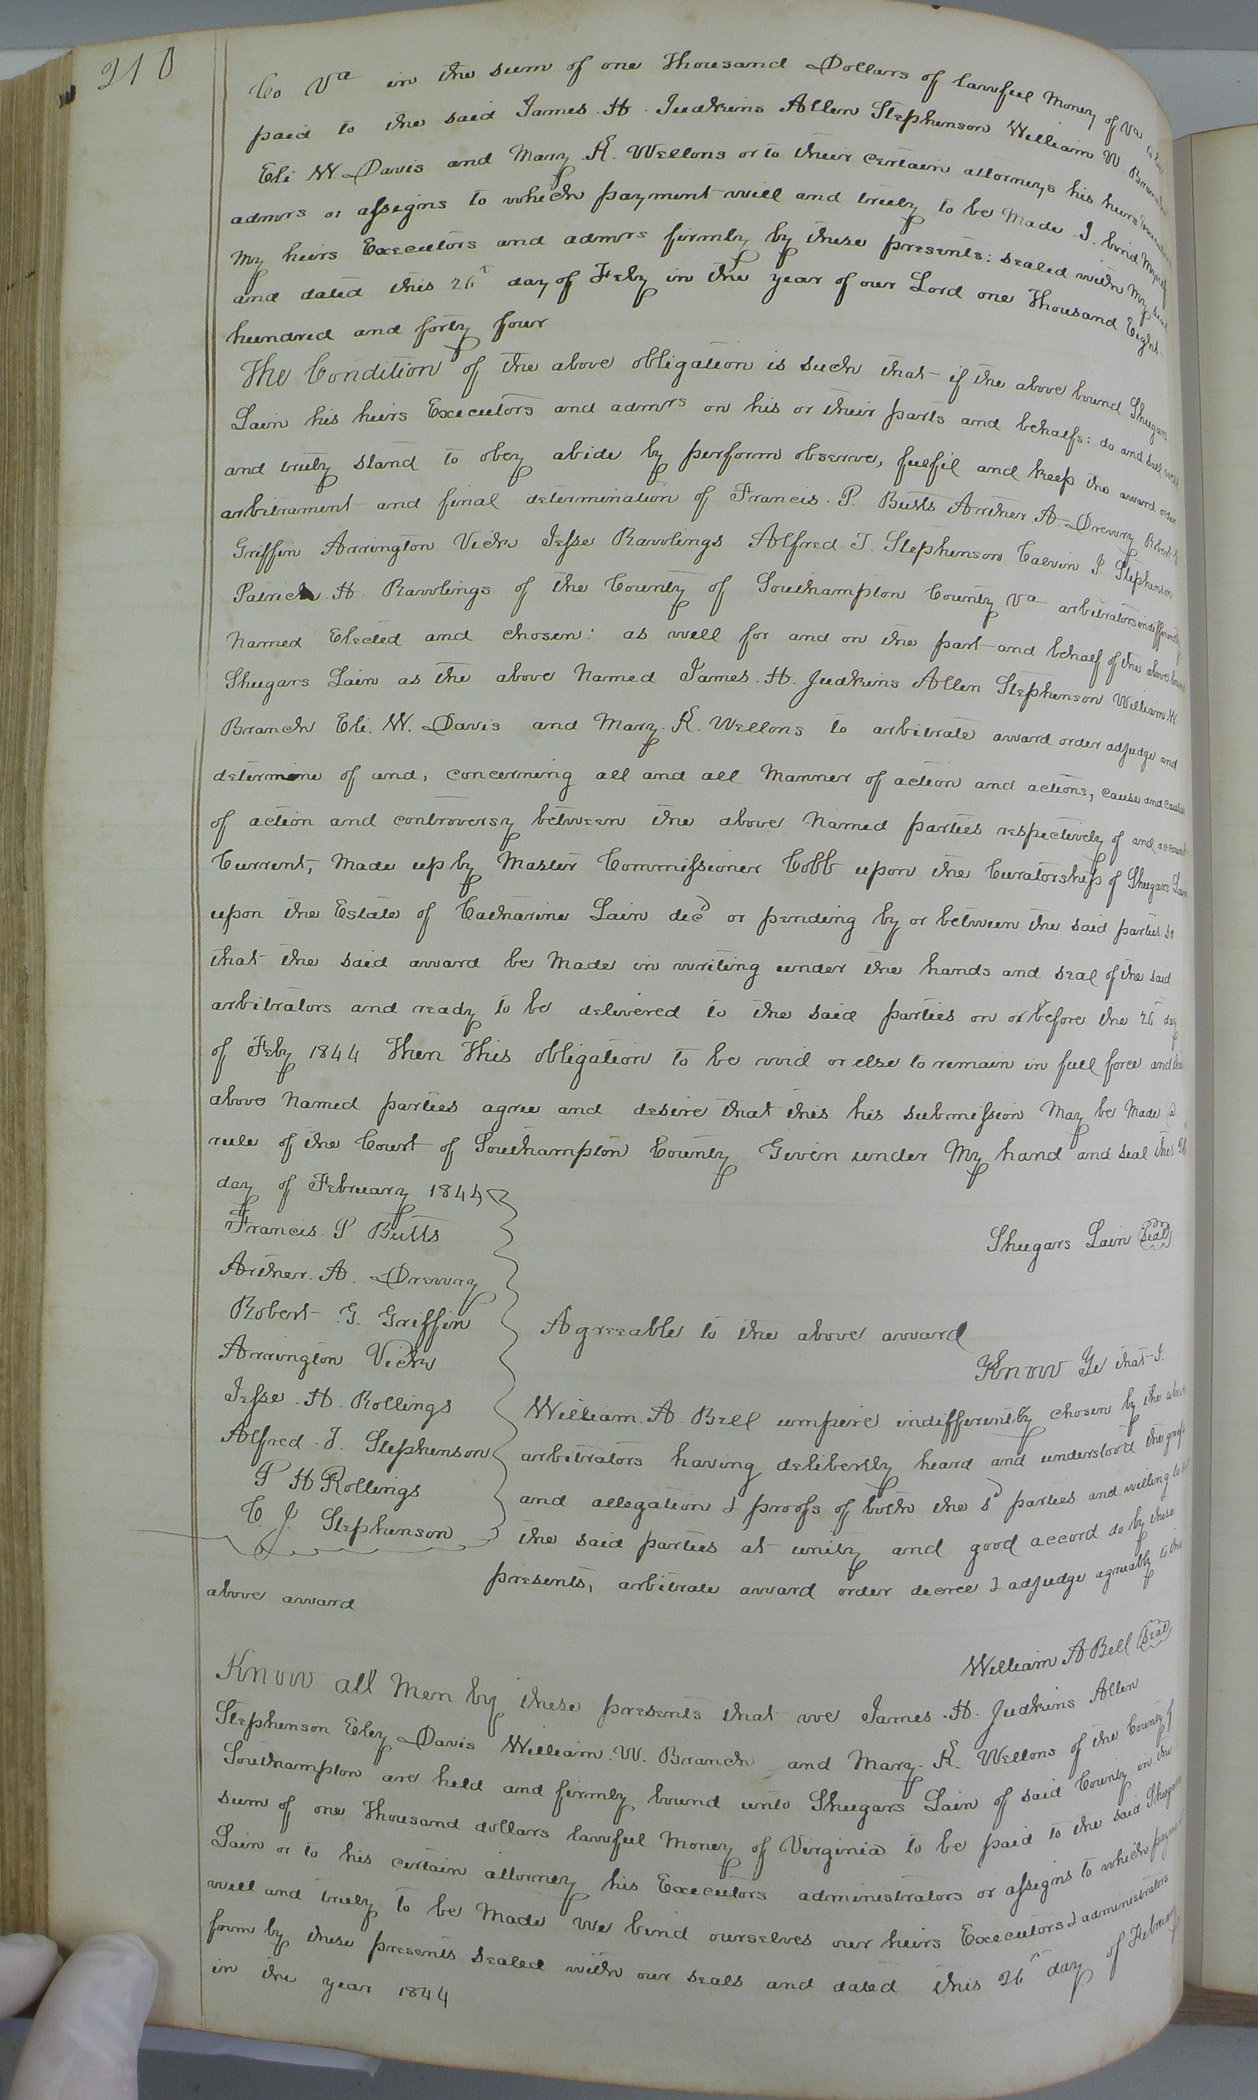 210
Co Va in the sum of one Thousand Dollars of lawful Money of Va to be
paid to the said James. H. Judkins Allen Stephenson William W. Branch
Eli W. Davis and Mary. K. Wellons or to their certain attorneys his heirs Executors
admrs or assigns to which payment will and truly to be Made I bind Myself
My heirs Executors and admrs firmly by these presents: sealed with My seal
and dated this 26th day of Feby in the year of our Lord one Thousand Eight
hundred and forty four
The Condition of the above obligation is such that if the above bound Shugars
Lain his heirs Executors and admrs on his or their parts and behalfs: do and shall well
and truly stand to obey abide by perform observe, fulfil and keep the award order
arbitrament and final determination of Francis. P. Butts Arther. A Drewry Robert G
Griffin Arrington Vick Jesse Rawlings Alfred J. Stephenson Calvin J. Stephenson
Patrick. H. Rawlings of the County of Southampton County Va arbitrators indifferently
Named Elected and chosen: as well for and on the part and behalf of the above bound
Shugars Lain as the above Named James. H. Judkins Allen Stephenson William. W.
Branch Eli. W. Davis and Mary. K. Wellons to arbitrate award order adjudge and
determine of and, concerning all and all Manner of action and actions, cause and causes
of action and controversy between the above Named parties respectively of and account
Current, Made up by Master Commissioner Cobb upon the Curatorship of Shugars Lain
upon the Estate of Catharine Lain decd or pending by or between the said parties so
that the said award be Made in writing under the hands and seal of the said
arbitrators and ready to be delivered to the said parties on or before the 26 day
of Feby 1844 Then This obligation to be void or else to remain in full force and the
above Named parties agree and desire that this his submission May be Made a
rule of the Court of Southampton County Given under My hand and seal this 26
day of February 1844
Shugars Lain Seal
Francis. P Butts
Arther. A. Drewry
Robert G. Griffin
Arrington Vick
Jesse. H. Rollings
Alfred. J. Stephenson
P H Rollings
C. J. Stephenson
Agreeable to the above award
Know Ye that I.
William. A. Bell umpire indifferently chosen by the above
arbitrators having delibertly heard and understood the
and allegation & proofs of both the sd parties and willing to
the said parties at unity and good accord do by these
presents, arbitrate award order decree & adjudge agreeably to the
above award
William A Bell Seal
Know all Men by these presents that we James. H. Judkins Allen
Stephenson Eley Davis William. W. Branch and Mary. K. Wellons of the County of
Southampton are held and firmly bound unto Shugars Lain of said County in the
sum of one Thousand dollars lawful Money of Virginia to be paid to the said Shugars
Lain or to his certain attorney his Executors administrators or assigns to which payment
will and truly to be Made We bind ourselves our heirs Executors & administrators
form by these presents sealed with our seals and dated this 26th day of February
in the year 1844